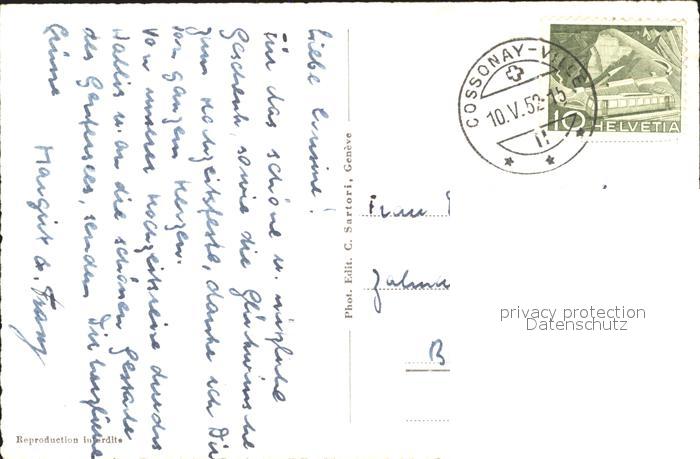 Liebe Cousine!
Für das schöne u. nützliche
Geschenk, sowie die Glückwünsche
zum Hochzeitsfeste, danke ich Dir
von ganzem Herzen.
Von unserer Hochzeitsreise durchs
Wallis u. an die schönen Gestade
des Genfersees, senden Dir herzliche
Grüsse
Margrit u. Franz
Phot. Edit. C. Sartori, Genève
Reproduction interdite
COSSONAY-VILLE
10.V.52-15
10 HELVETIA
Frau
B
privacy protection
Datenschutz